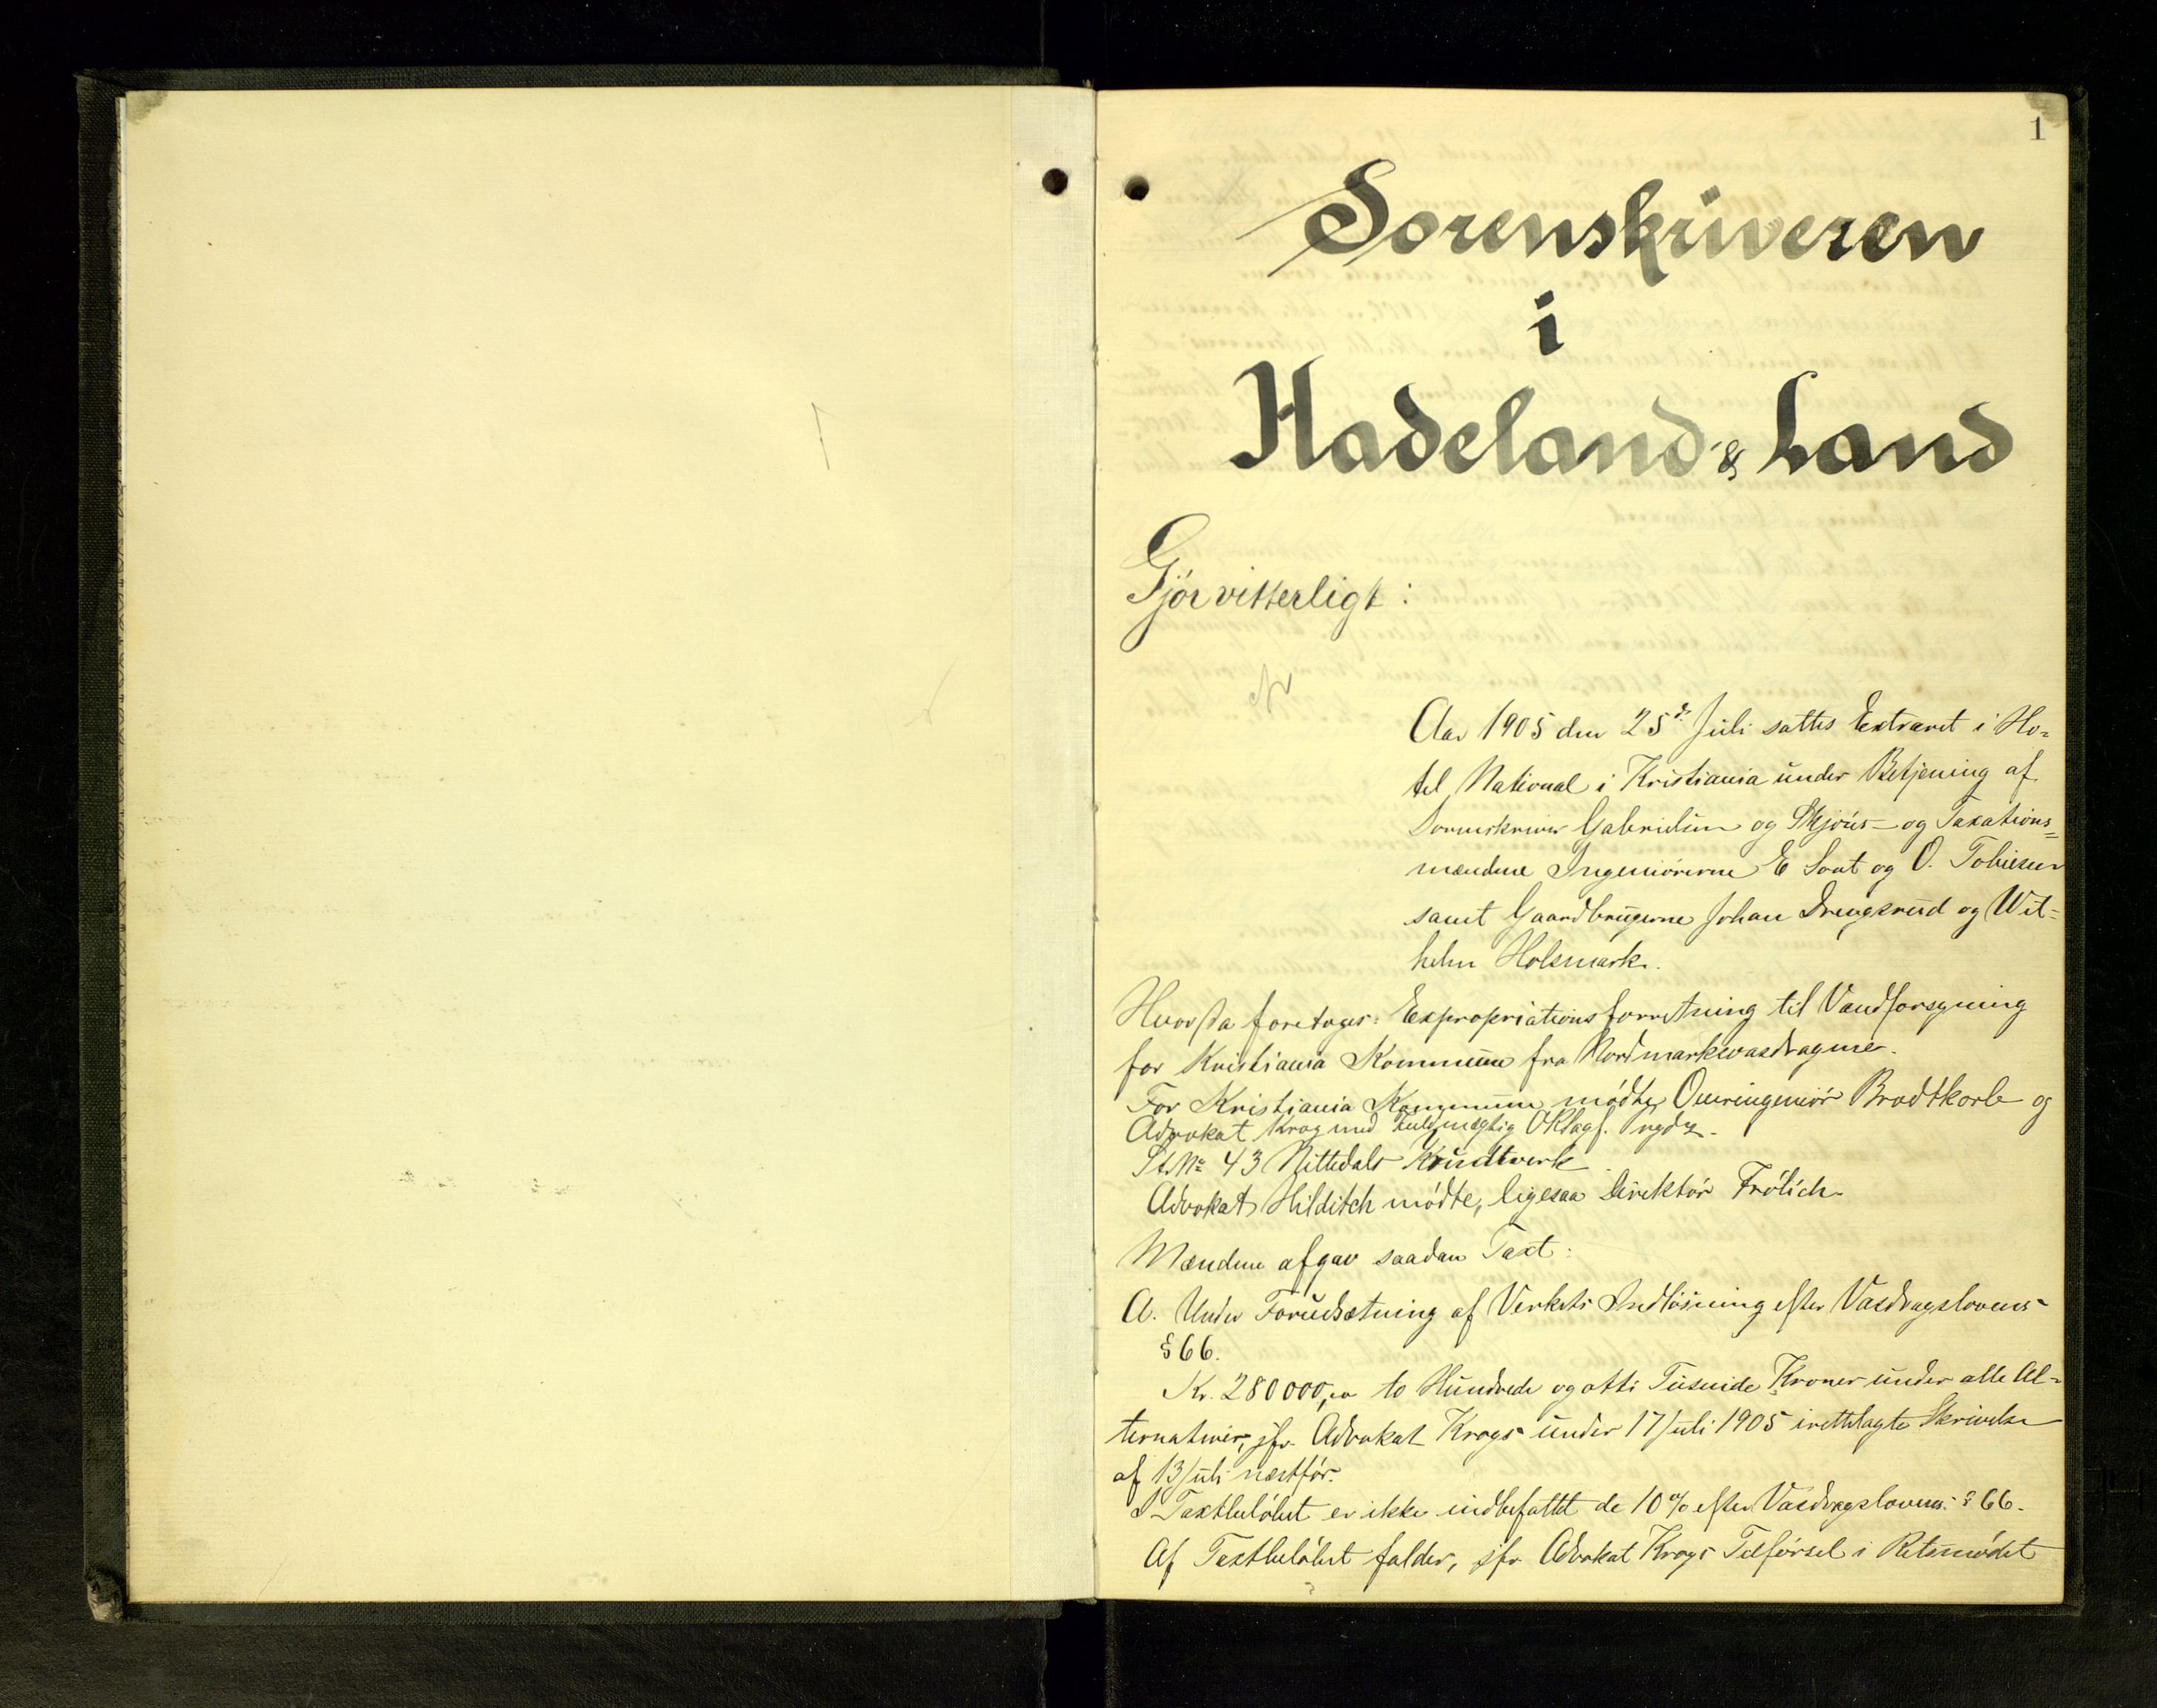 1
Sorenskriveren
i
Hadeland & Land
Gjør vitterligt:
Aar 1905 den 25de Juli sattes Extraret i Ho-
tel National i Kristiania under Betjening af
Sorenskriver Gabrielsen og Skjøns- og Taxations-
mændene Ingeniørerne E Sont og O. Tobiesen
samt Gaardbrugerne Johan Drengsrud og Wil-
helm Holsmark.
Hvorda foretoges: Expropriationsforretning til Vandforsyning
for Kristiania Kommune fra Nordmarksvasdragene.
For Kristiania Kommune mødte Overingeniør Brodtkorb og
Advokat Krog med Fuldmægtig
St. No 43 Nittedals Krudtverk
Advokat Hilditch mødte, ligesaa Direktør Frølich.
Mændene afgav saadan Taxt:
A. Under Forudsætning af Verkets Indløsning efter Vasdragslovens
§ 66.
Kr. 280000,00 to Hundrede og otti Tusinde Kroner under alle Al-
ternativer, jfr. Advokat Krogs under 17 Juli 1905 irettelagte Skrivelse
af 13 Juli næstfør.
I Taxtbeløbet er ikke indbefattet de 10 % efter Vasdragslovens § 66.
Af Taxtbeløbet falder, jfr Advokat Krogs Tilførsel i Retsmødet